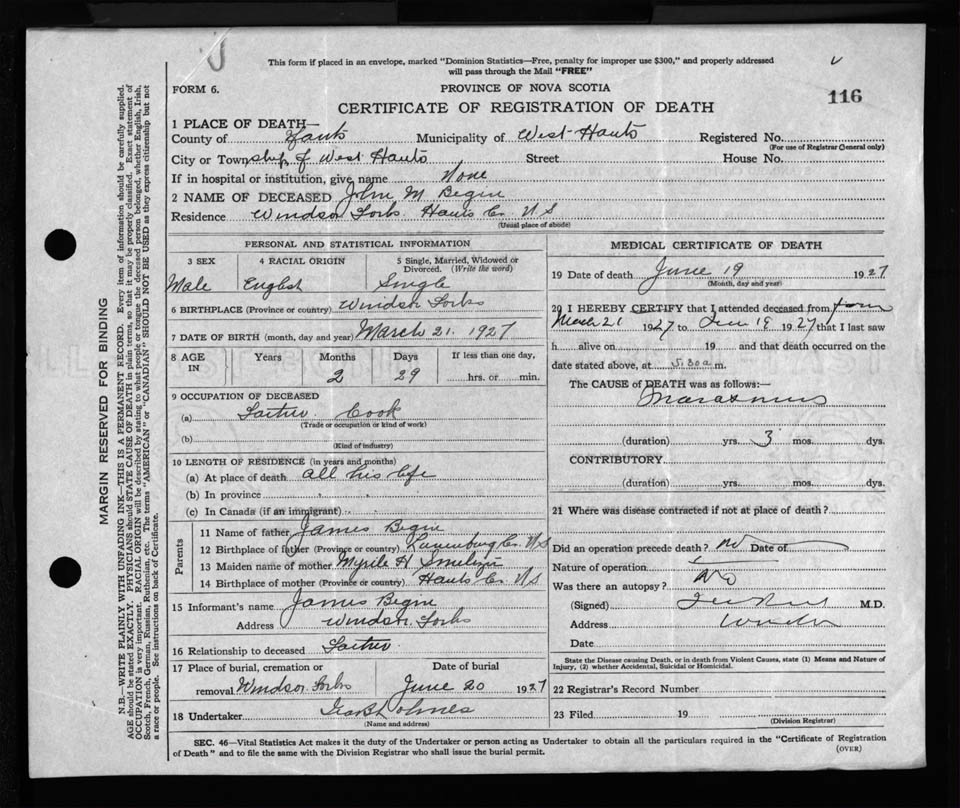 This form if placed in an envelope, marked "Dominion Statistics—Free, penalty for improper use $300," and properly addressed
will pass through the Mail "FREE"
FORM 6.
PROVINCE OF NOVA SCOTIA
116
CERTIFICATE OF REGISTRATION OF DEATH
1 PLACE OF DEATH—
County of Hants Municipality of West Hants Registered No.
(For use of Registrar General only)
City or Township of West Hants Street House No.
If in hospital or institution, give name None
2 NAME OF DECEASED John M
Residence Windsor Forks. Hants Co. N S
(Usual place of abode)
PERSONAL AND STATISTICAL INFORMATION
3 SEX 4 RACIAL ORIGIN 5 Single, Married, Widowed or Divorced. (Write the word)
Male English Single
6 BIRTHPLACE (Province or country) Windsor Forks
7 DATE OF BIRTH (month, day and year) March 21. 1927
8 AGE IN Years Months Days If less than one day,
2 29 hrs. or min.
9 OCCUPATION OF DECEASED
(a) Father. Cook
(Trade or occupation or kind of work)
(b)
(Kind of industry)
10 LENGTH OF RESIDENCE (in years and months)
(a) At place of death all his life
(b) In province
(c) In Canada (if an immigrant)
Parents
11 Name of father James
12 Birthplace of father (Province or country) Lunenburg Co. N S
13 Maiden name of mother
14 Birthplace of mother (Province or country) Hants Co. N S
15 Informant's name James
Address Windsor Forks
16 Relationship to deceased Father
17 Place of burial, cremation or Date of burial
removal Windsor Forks June 20 1927
18 Undertaker
(Name and address)
MEDICAL CERTIFICATE OF DEATH
19 Date of death June 19 1927
(Month, day and year)
20 I HEREBY CERTIFY that I attended deceased from
March 21 1927 to 1927 that I last saw
h alive on 19 and that death occurred on the
date stated above, at 5.30 a m.
The CAUSE of DEATH was as follows:—
Marasmus
(duration) yrs. 3 mos. dys.
CONTRIBUTORY
(duration) yrs. mos. dys.
21 Where was disease contracted if not at place of death?
Did an operation precede death? no Date of
Nature of operation
Was there an autopsy? no
(Signed) M.D.
Address Windsor
Date
State the Disease causing Death, or in death from Violent Causes, state (1) Means and Nature of
Injury, (2) whether Accidental, Suicidal or Homicidal.
22 Registrar's Record Number
23 Filed 19
(Division Registrar)
SEC. 46—Vital Statistics Act makes it the duty of the Undertaker or person acting as Undertaker to obtain all the particulars required in the "Certificate of Registration
of Death" and to file the same with the Division Registrar who shall issue the burial permit.
(OVER)
MARGIN RESERVED FOR BINDING
N.B.—WRITE PLAINLY WITH UNFADING INK—THIS IS A PERMANENT RECORD. Every item of information should be carefully supplied.
AGE should be stated EXACTLY. PHYSICIANS should STATE CAUSE OF DEATH in plain terms, so that it may be properly classified. Exact statement of
OCCUPATION is very important. RACIAL ORIGIN will be described by stating to what people or tongue the deceased person belonged, whether English, Irish,
Scotch, French, German, Russian, Ruthenian, etc. The terms "AMERICAN" or "CANADIAN" SHOULD NOT BE USED as they express citizenship but not
a race or people. See instructions on back of Certificate.